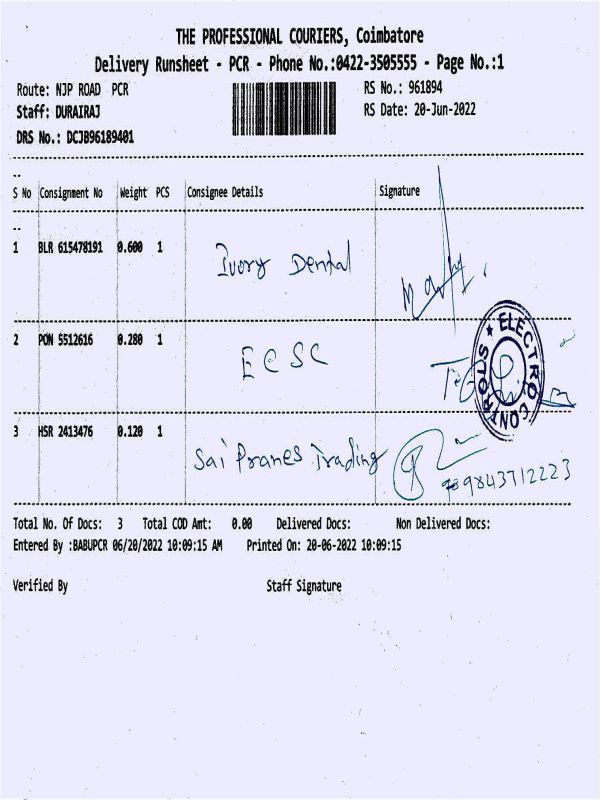 THE PROFESSIONAL COURIERS, Coimbatore
Delivery Runsheet - PCR - Phone No.:0422-3505555 - Page No.:1
Route: NJP ROAD PCR RS No.: 961894
Staff: DURAIRAJ RS Date: 20-Jun-2022
DRS No.: DCJB96189401
S No Consignment No Weight PCS Consignee Details Signature
1 BLR 615478191 0.600 1 Ivory Dental
2 PON 5512616 0.280 1 ECSC
ELECTRO CONTROLS
3 HSR 2413476 0.120 1 Sai Pranes Trading
9843712223
Total No. Of Docs: 3 Total COD Amt: 0.00 Delivered Docs: Non Delivered Docs:
Entered By :BABUPCR 06/20/2022 10:09:15 AM Printed On: 20-06-2022 10:09:15
Verified By Staff Signature